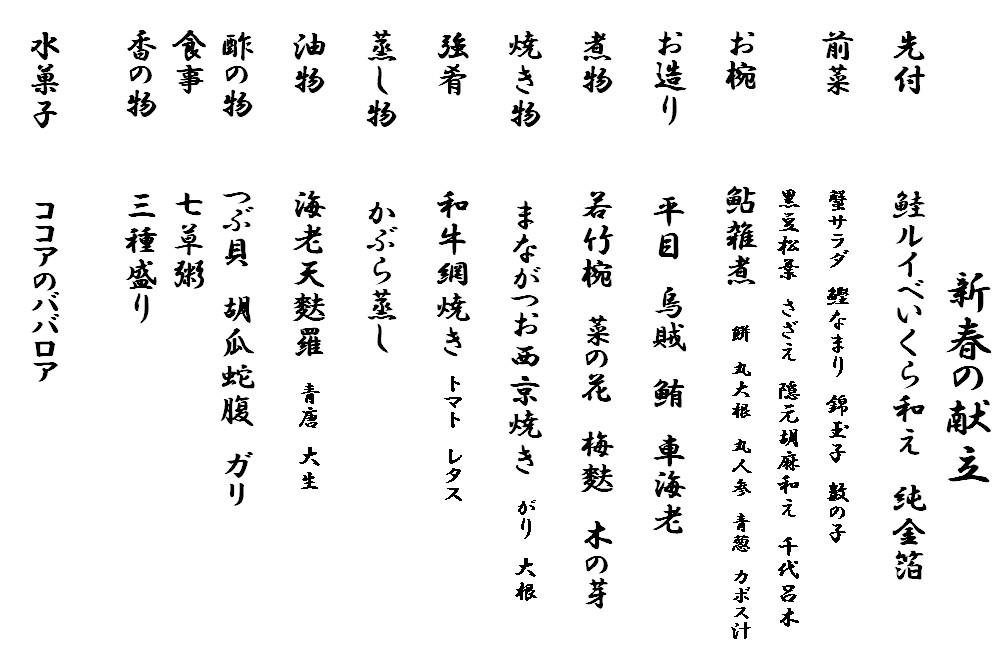 新春の献立
先付 鮭ルイベいくら和え 純金箔
前菜 蟹サラダ 鰹なまり 錦玉子 数の子
黒豆松葉 さざえ 隠元胡麻和え 千代呂木
お椀 鮎雑煮 餅 丸大根 丸人参 青葱 カボス汁
お造り 平目 烏賊 鮪 車海老
煮物 若竹椀 菜の花 梅麩 木の芽
焼き物 まながつお西京焼き がり 大根
強肴 和牛網焼き トマト レタス
蒸し物 かぶら蒸し
油物 海老天麩羅 青唐 大生
酢の物 つぶ貝 胡瓜蛇腹 ガリ
食事 七草粥
香の物 三種盛り
水菓子 ココアのババロア